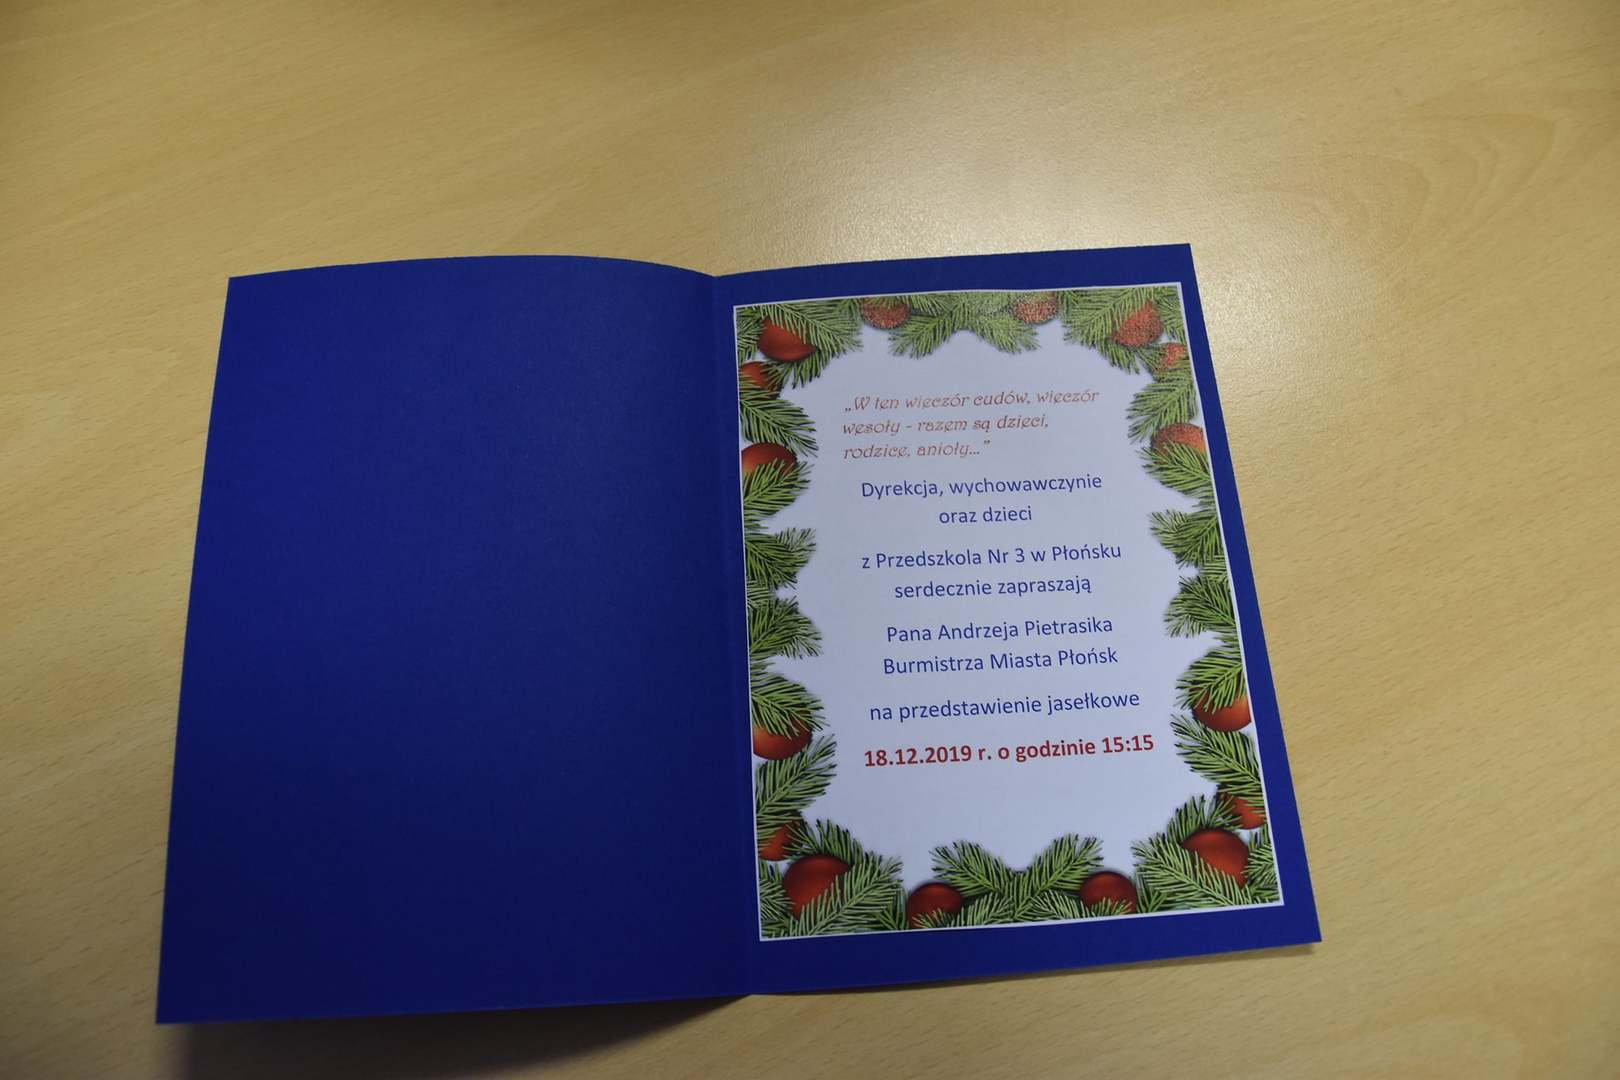 „W ten wieczór cudów, wieczór
wesoły - razem są dzieci,
rodzice, anioły...”
Dyrekcja, wychowawczynie
oraz dzieci
z Przedszkola Nr 3 w Płońsku
serdecznie zapraszają
Pana Andrzeja Pietrasika
Burmistrza Miasta Płońsk
na przedstawienie jasełkowe
18.12.2019 r. o godzinie 15:15